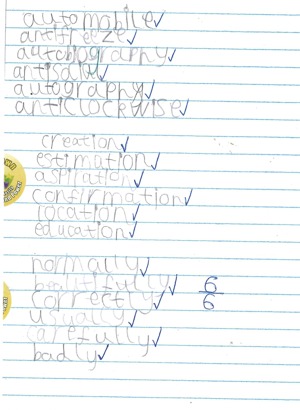 automobile
antifreeze
autobiography
antisocial
autography
anticlockwise
creation
estimation
aspiration
confirmation
location
education
normally
beautifully
correctly
usually
carefully
badly
6/6